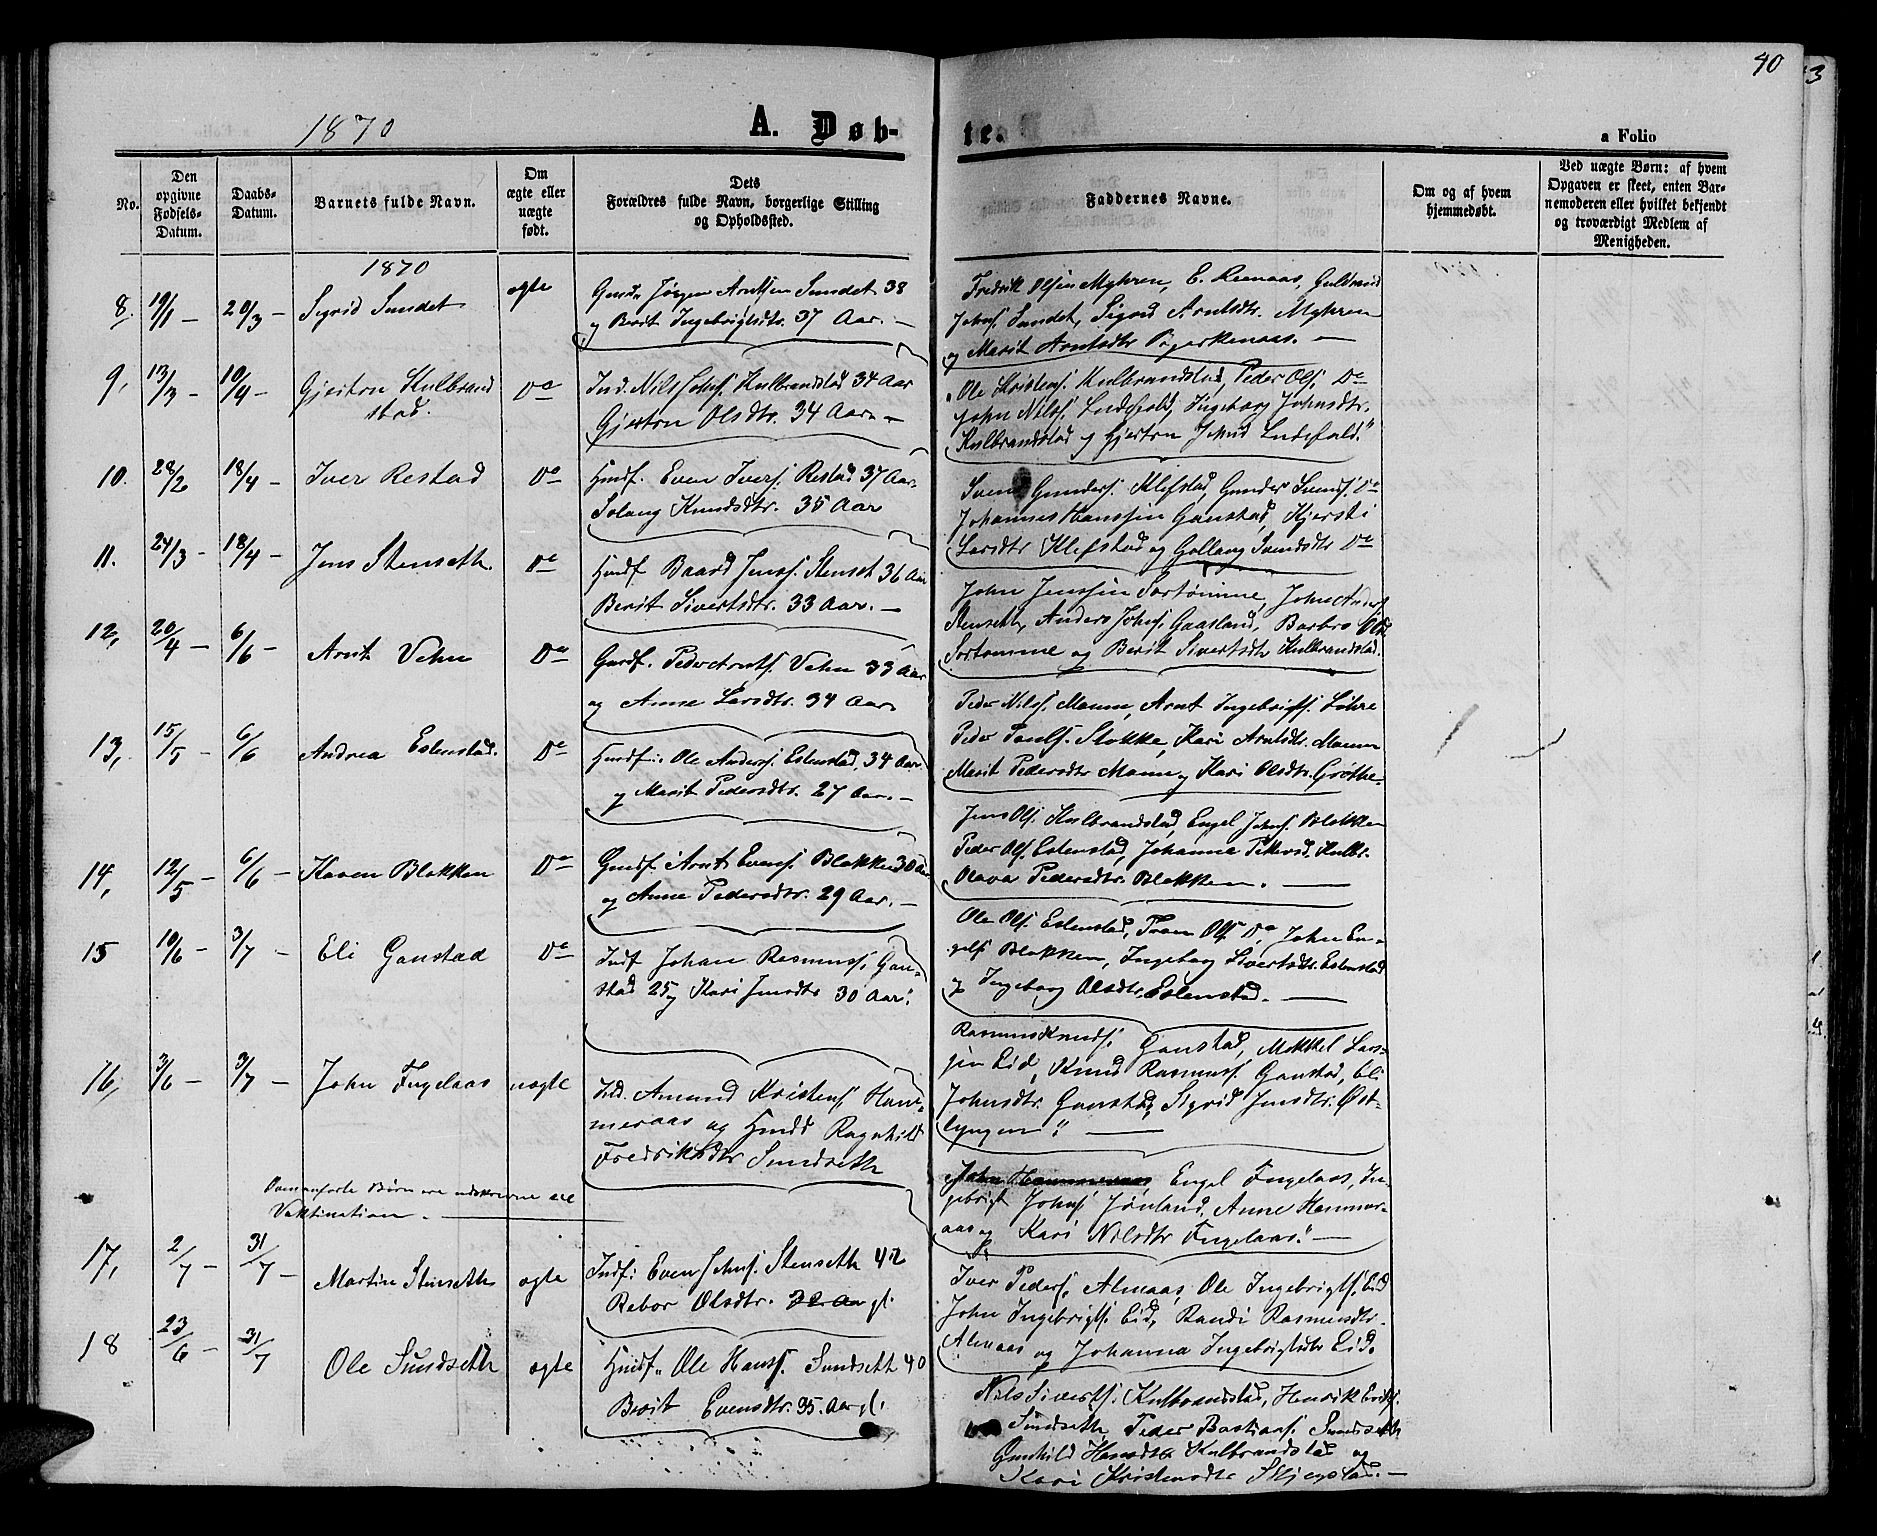 40
3
1870
A. Døb-
te.
a Folio
No.
Den
opgivne
Fødsels-
Datum.
Daabs-
Datum.
Barnets fulde Navn.
Om
ægte eller
uægte
født.
Dets
Forældres fulde Navn, borgerlige Stilling
og Opholdssted.
Faddernes Navne.
Om og af hvem
hjemmedøbt.
Ved uægte Børn: af hvem
Opgaven er skeet, enten Bar-
nemoderen eller hvilket bekjendt
og troværdigt Medlem af
Menigheden.
1870
8. 19/1 — 20/3 — Sigrid Sundet
ægte
Gmd. Jørgen Arntsen Sundet 38
og Berit Ingebrigtsdtr. 37 Aar. —
Fredrik Olsen Myhren, E. Reenaas, Guldbrand
Johns. Sundet, Sigrid Arntsdtr. Myhren
og Marit Arntsdtr
9, 13/3 — 10/4 — Gjertru Kulbrand
stad.
Do
Ind. Nils Johns. Kulbrandstad 34 Aar
Gjertru Olsdtr. 34 Aar —
Ole Kristens. Kulbrandstad, Peder Ols. Do
John Nils. Ingeborg Johnsdtr.
Kulbrandstad og Gjertru
10. 28/2 18/4 — Iver Restad
Do
Hmdf. Even Ivers. Restad 37 Aar
Solaug Knudsdtr. 35 Aar
Svend Gunders. Klefstad, Gunder Svends. Do
Johannes Hanssen Ganstad, Kjersti
Larsdtr Klefstad og Gollaug Svendsdtr Do
11. 24/3 — 18/4 — Jens Stenseth.
Do
Hmdf Baard Jens. Stenset 36 Aar
Berit Sivertsdtr. 33 Aar. —
John Jenssen Sortømme, John Anders
Stenseth, Anders Johns. Gaasland, Barbro Olsd
Sortømme og Berit Sivertsdtr Kulbrandstad.
12, 20/4 — 6/6 — Arnt Vehn
Do
Gmdf. Peder Arnts. Vehn 33 Aar
og Anne Larsdtr. 34 Aar
Peder Nils. Mamn, Arnt Ingebrigts. Løhre
Peder Pauls. Stokke, Kari Arntsdtr. Mamn
Marit Pedersdtr Mamn og Kari Olsdtr. Grøthe-
13, 15/5 — 6/6 Andrea Eslenstad.
Do
Hmdf. Ole Anders. Eslenstad, 34 Aar
og Marit Pedersdtr. 27 Aar. —
Jens Ols. Kulbrandstad, Engel Johns. Blokken
Peder Ols. Eslenstad, Johanne Pedersd. Kulbr.
Olava Pedersdtr. Blokken. —
14, 12/5 — 6/6 — Karen Blokken
Do
Gmdf. Arnt Evens. Blokken 30 Aar
og Anne Pedersdtr. 29 Aar. —
Ole Ols. Eslenstad, Tron Ols. Do, John En-
gels Blokken, Ingeborg Sivertsdtr. Eslenstad
og Ingeborg Olsdtr. Eslenstad. —
15 10/6 — 3/7 — Eli Ganstad
Do
Indf Johan Rasmuss. Gan-
stad 25 og Kari Jensdtr 30 Aar.
Rasmus Knuds. Ganstad, Mikkel Lars-
sen Eid, Knud Rasmuss. Ganstad, Eli
Johnsdtr. Ganstad, Sigrid Jensdtr. Øst-
lyngen. —
16, 3/6 — 3/7 — John Fugelaas
uægte
Ind. Amund Kristens. Ham-
meraas og Hmdd Ragnhild
Fredriksdtr Sundseth
John Hammeraas Engel Fugelaas, In-
gebrigt Johns. Anne Hammer-
aas og Kari Nilsdtr Fugelaas. —
Ovenanførte Børn ere udskrevne til
Vaktination. —
17, 2/7 — 31/7 — Martin Stenseth
ægte
Indf. Even Johns. Stenseth 42
Rebor Olsdtr. 32 Aar gl.
Iver Peders. Almaas, Ole Ingebrigts. Eid
John Ingebrigts. Eid, Randi Rasmusdtr.
Almaas og Johanna Ingebrigtsdtr Eid.
18 23/6 — 31/7 Ole Sundseth
ægte
Hmdf. Ole Hans. Sundseth 40
Berit Evensdtr. 35. Aar gl.
Nils Siverts. Kulbrandstad, Henrik
Sundseth, Peder Bastians. Sundseth
Gunhild Hansdtr Kulbrandstad og
Kari Kristensdtr Skjegstad. —